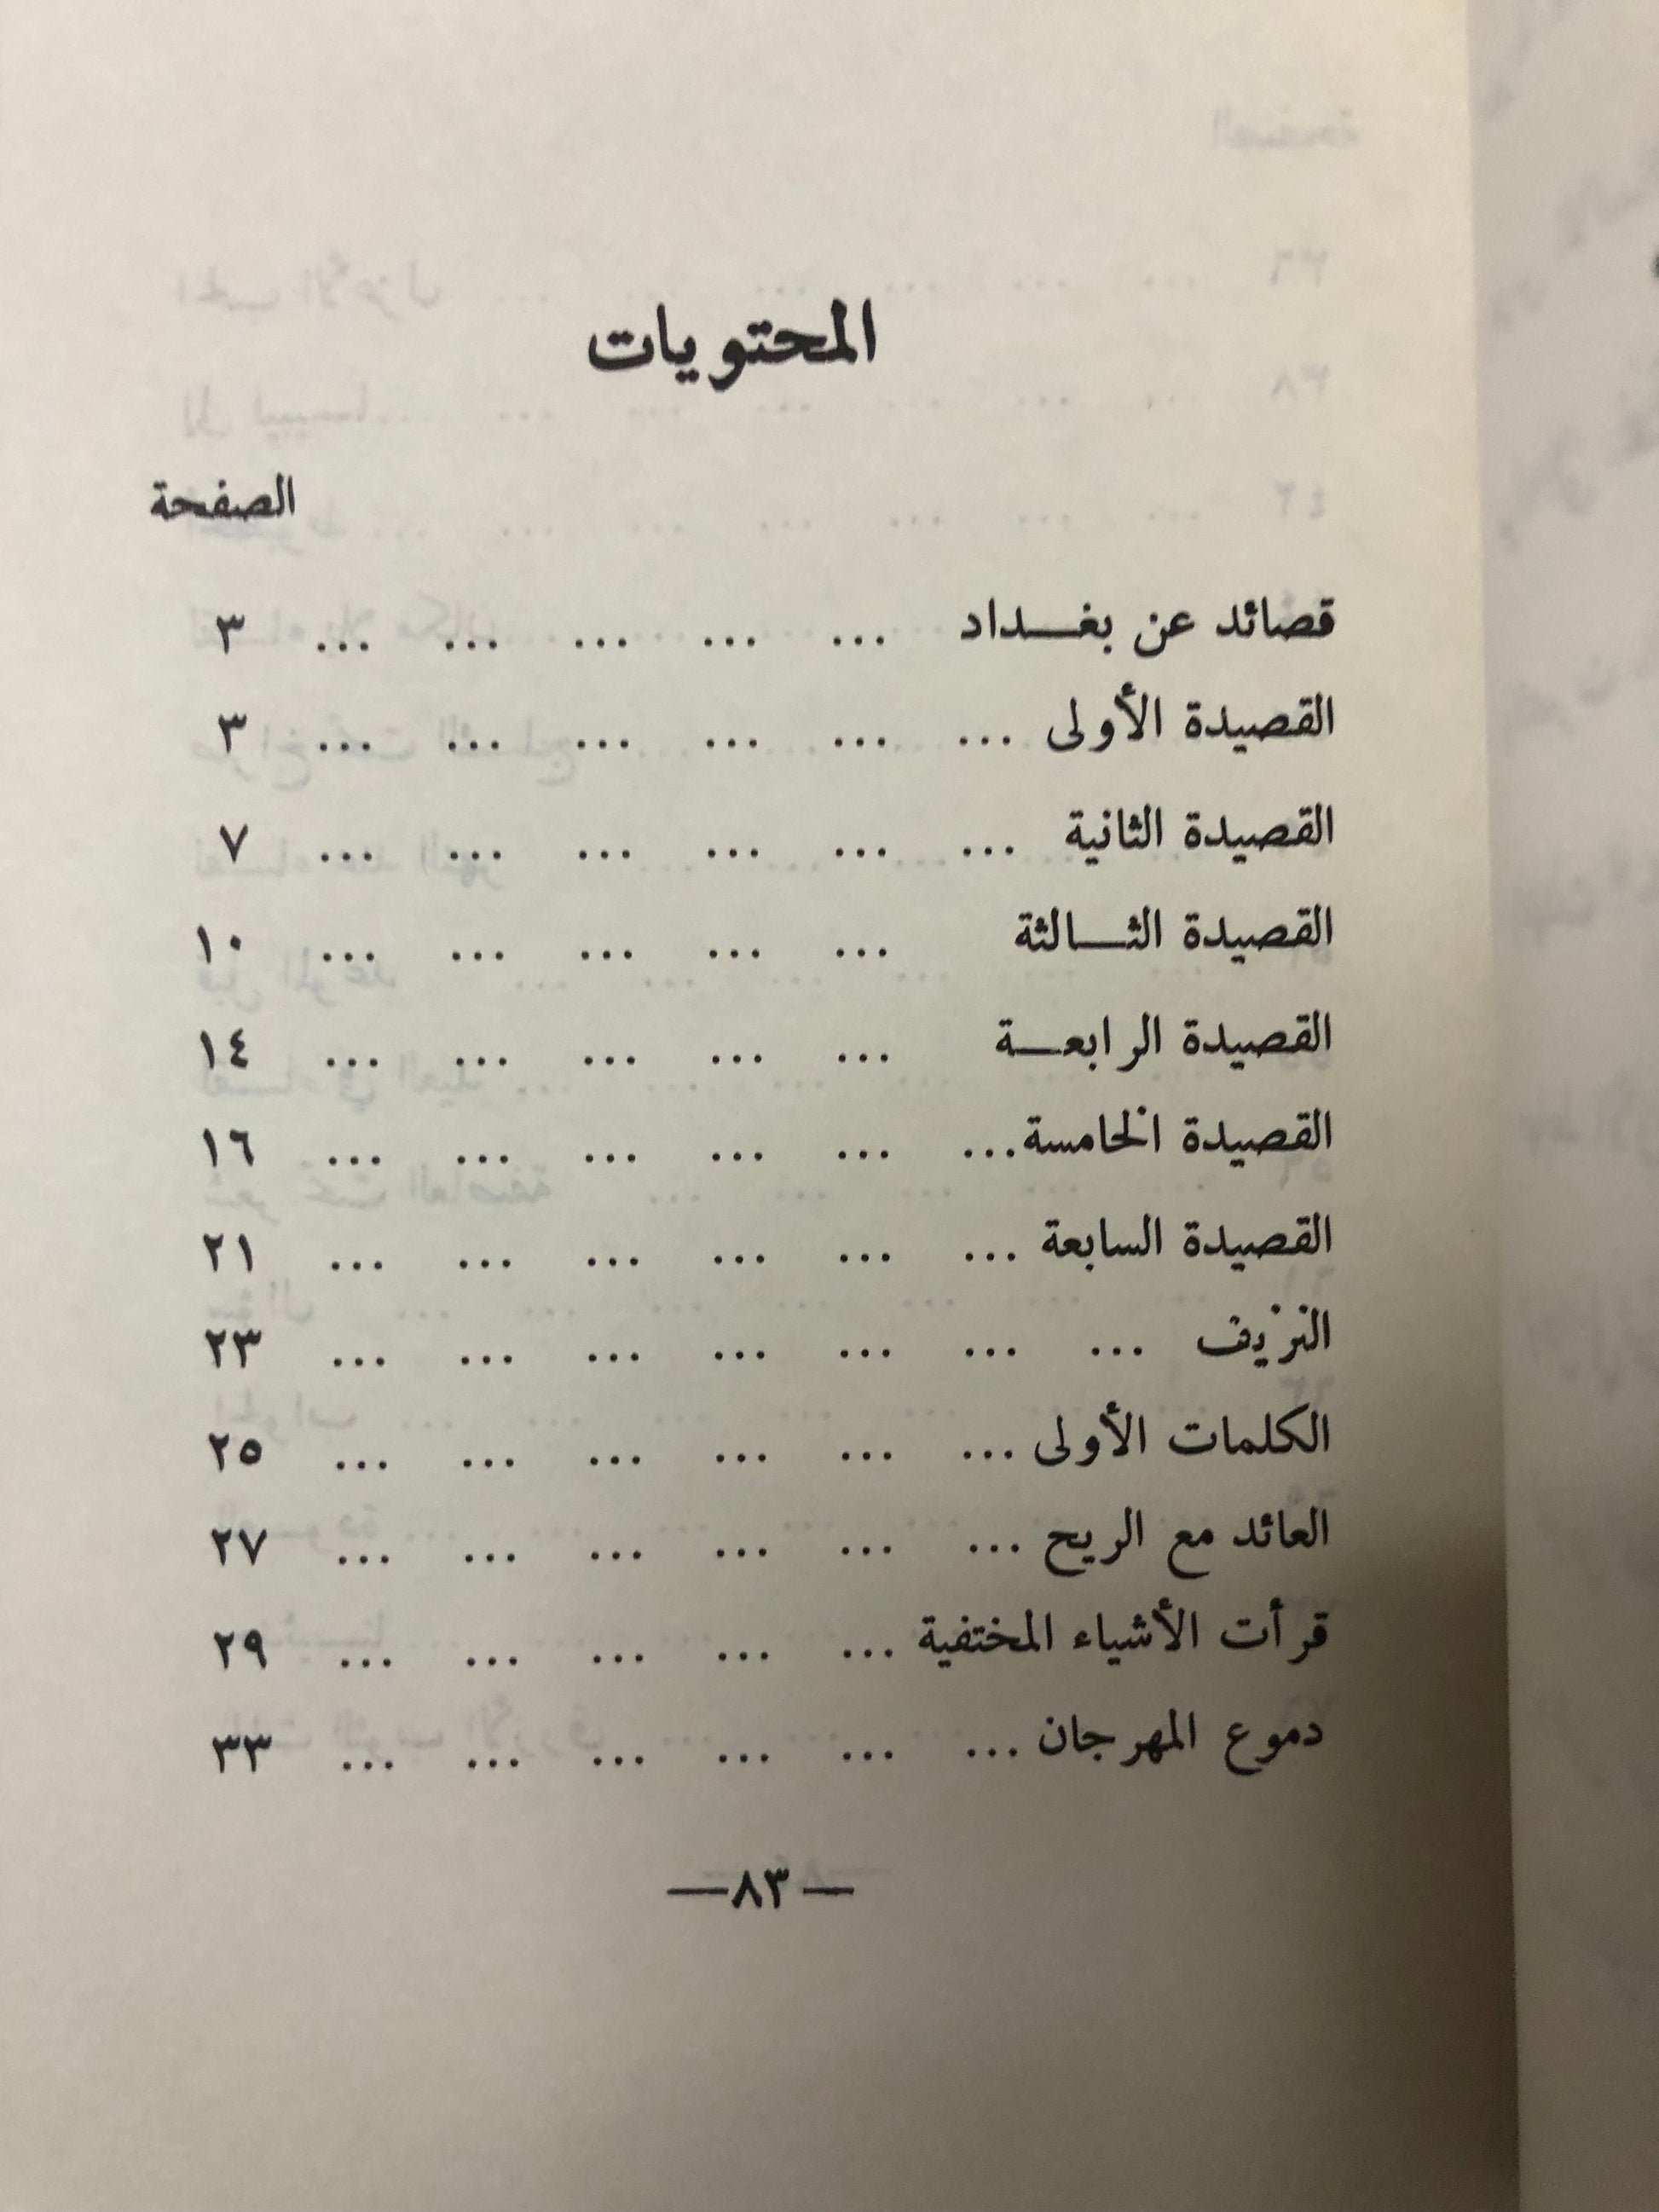 المحتويات
الصفحة
قصائد عن بغـــداد ... ... ... ... ... ٣
القصيدة الأولى ... ... ... ... ... ... ٣
القصيدة الثانية ... ... ... ... ... ... ٧
القصيدة الثـــالثة ... ... ... ... ... ١٠
القصيدة الرابعـــة ... ... ... ... ... ١٤
القصيدة الخامسة ... ... ... ... ... ... ١٦
القصيدة السابعة ... ... ... ... ... ... ٢١
النزيف ... ... ... ... ... ... ... ٢٣
الكلمات الأولى ... ... ... ... ... ... ٢٥
العائد مع الريح ... ... ... ... ... ... ٢٧
قرأت الأشياء المختفية ... ... ... ... ... ٢٩
دموع المهرجان ... ... ... ... ... ... ٣٣
—٨٣—